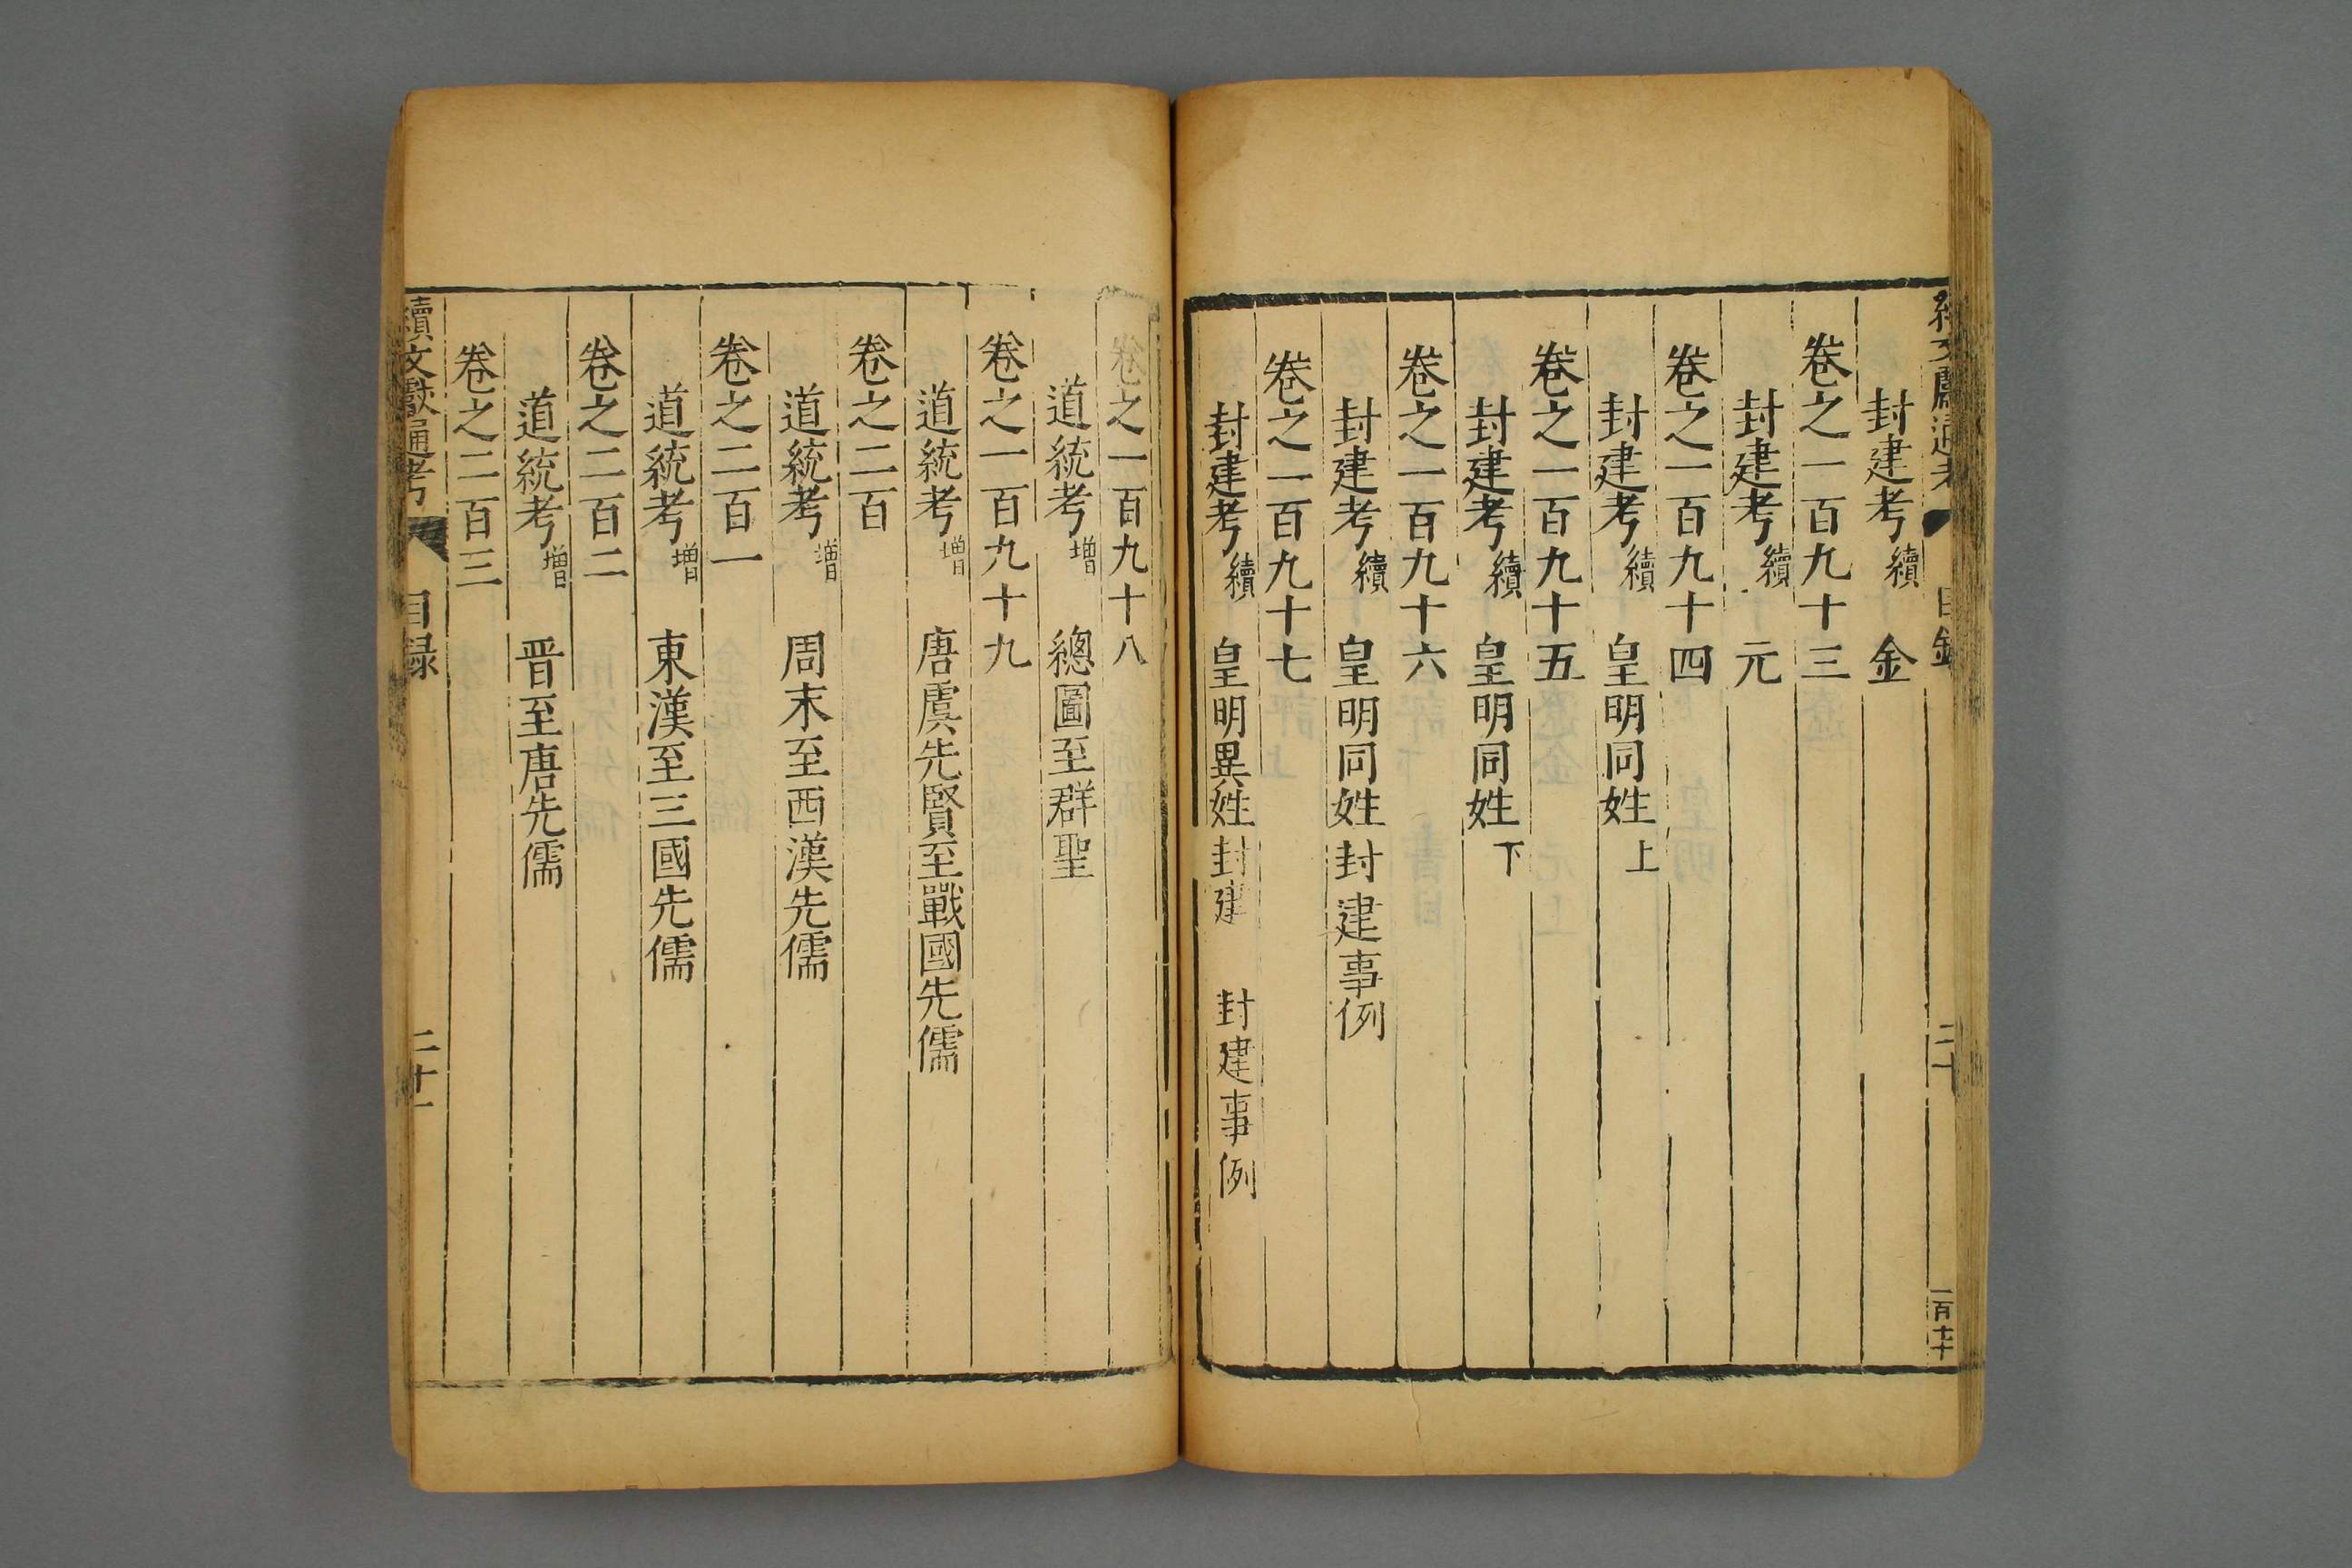 續文獻通考 目錄 二十
封建考 續 金
卷之一百九十三
封建考 續 元
卷之一百九十四
封建考 續 皇明同姓 上
卷之一百九十五
封建考 續 皇明同姓 下
卷之一百九十六
封建考 續 皇明同姓封建事例
卷之一百九十七
封建考 續 皇明異姓封建 封建事例
卷之一百九十八
道統考 增 總圖至群聖
卷之一百九十九
道統考 增 唐虞先賢至戰國先儒
卷之二百
道統考 增 周末至西漢先儒
卷之二百一
道統考 增 東漢至三國先儒
卷之二百二
道統考 增 晋至唐先儒
卷之二百三
續文獻通考 目録 二十一